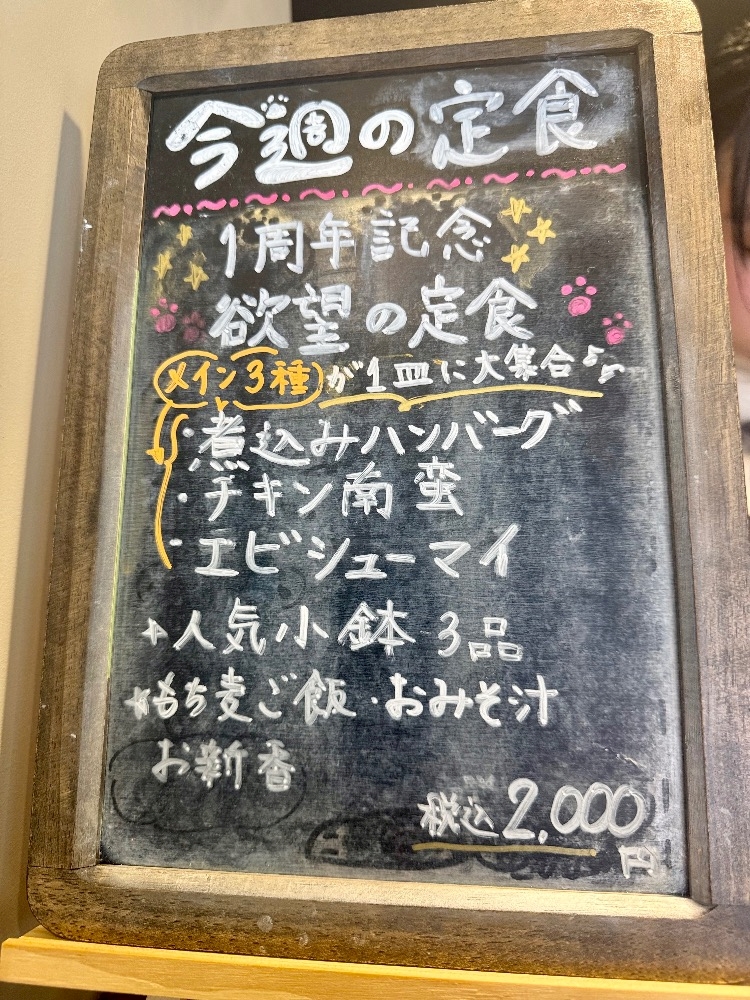 今週の定食
1周年記念
欲望の定食
メイン3種が1皿に大集合♪♪
・煮込みハンバーグ
・チキン南蛮
・エビシューマイ
人気小鉢 3品
もち麦ご飯・おみそ汁
お新香
税込2,000
円